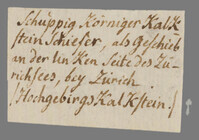 Schuppig Körniger Kalk
stein Schiefer, als Geschieb
an der linken Seite des Zü-
richsees, bey Zürich.
/Hochgebirgs Kalkstein./